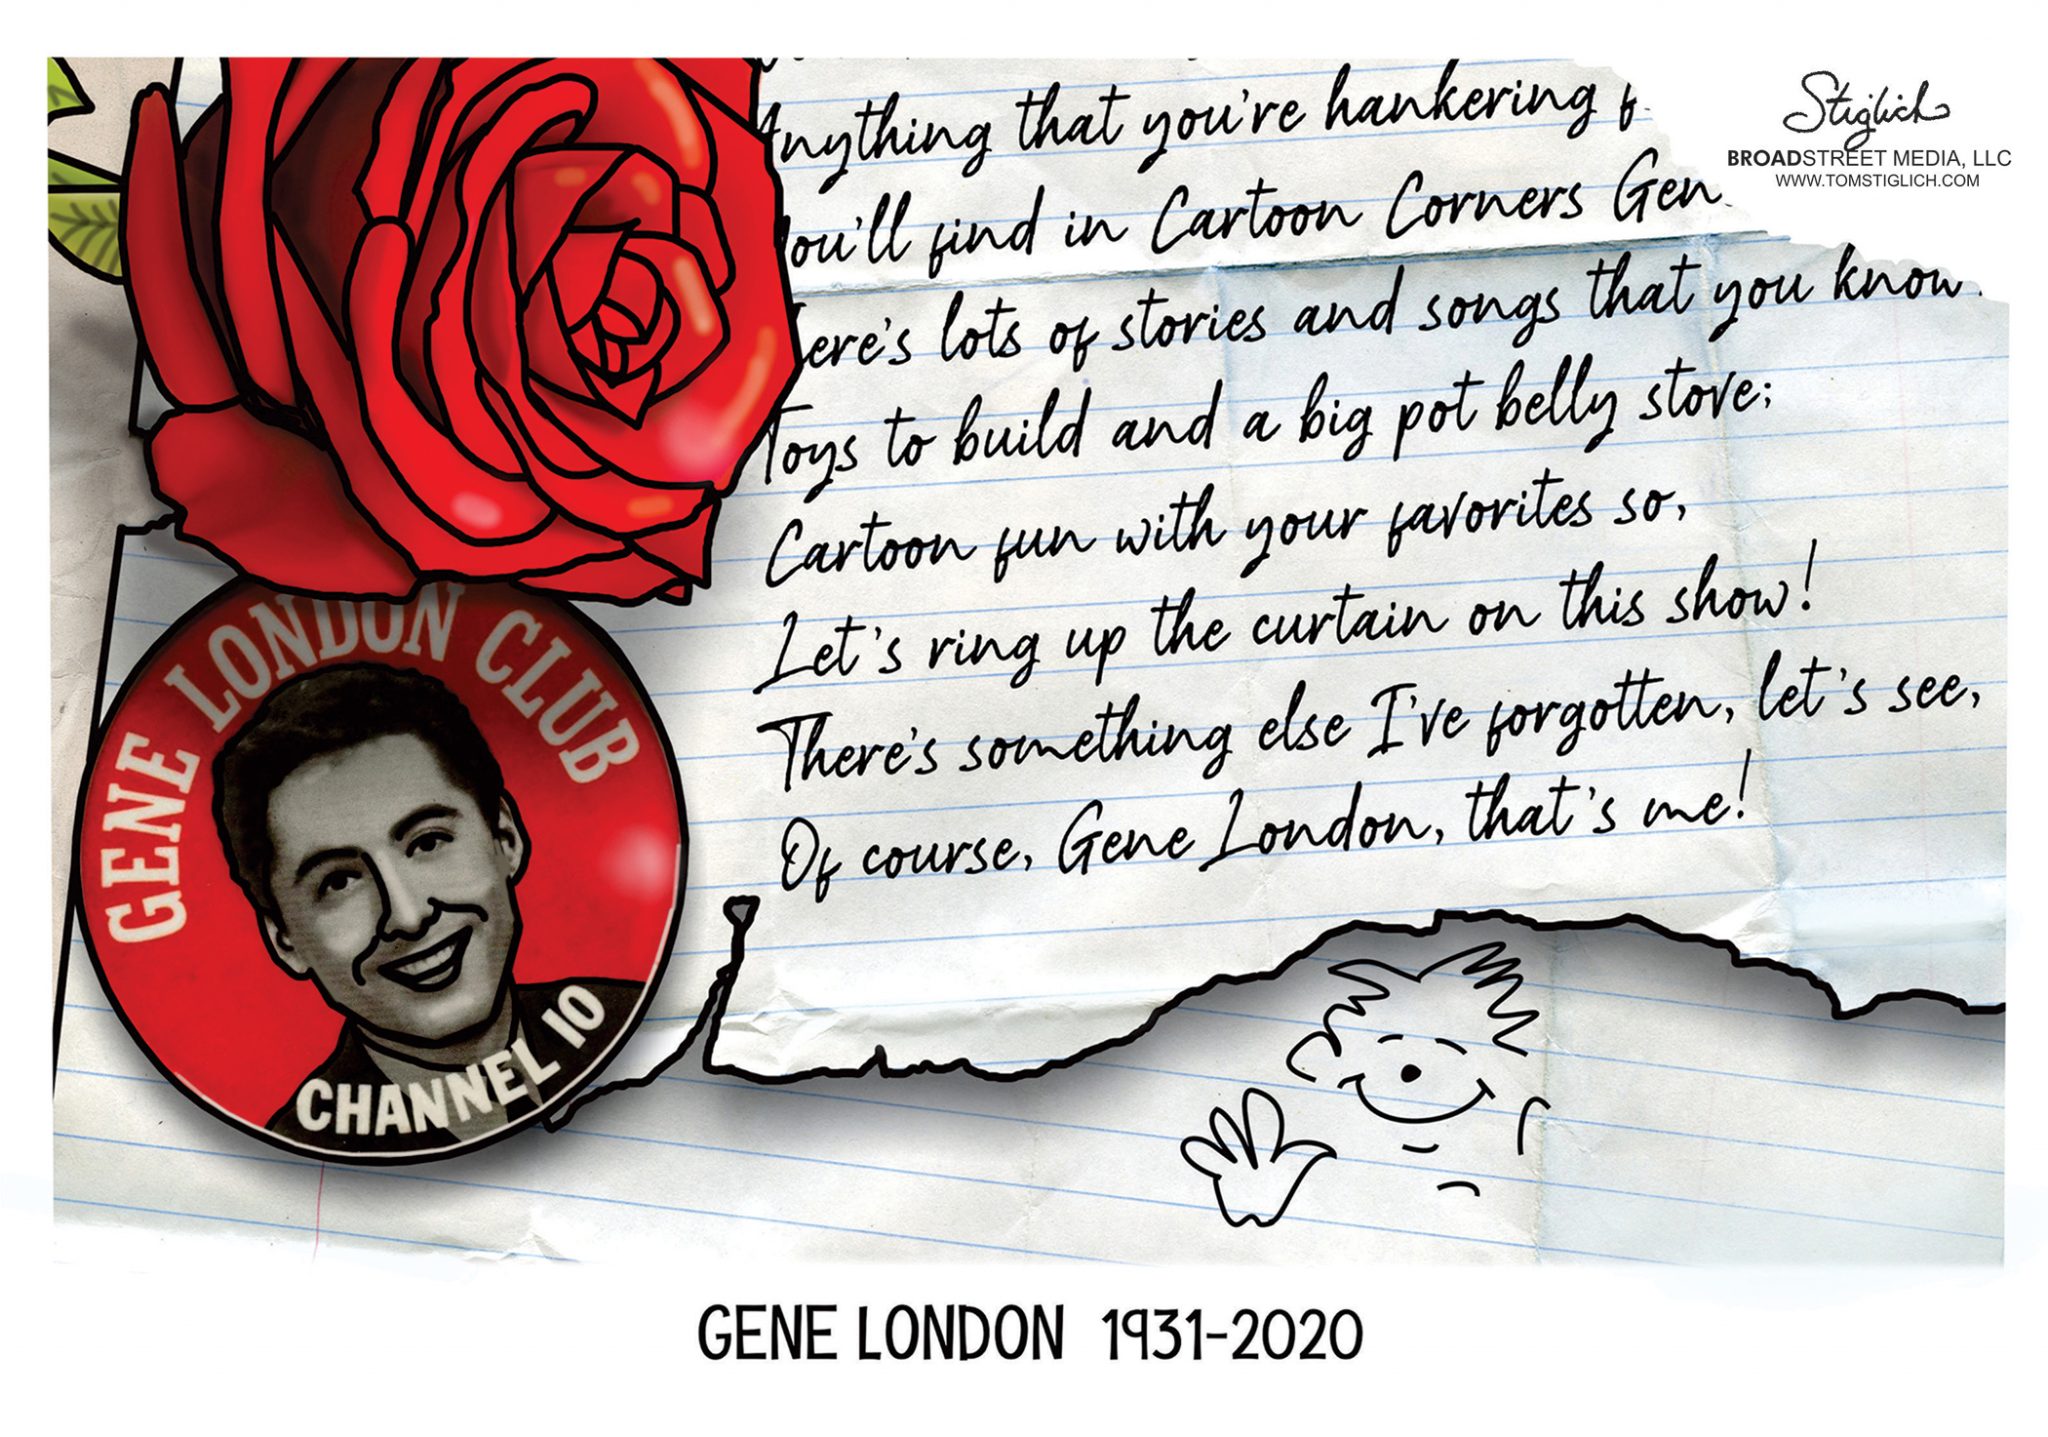 Stiglich
BROADSTREET MEDIA, LLC
WWW.TOMSTIGLICH.COM
that you're hankering
find in Cartoon Corners
lots of stories and songs that you know
Toys to build and a big pot belly stove;
Cartoon fun with your favorites so,
Let's ring up the curtain on this show!
There's something else I've forgotten, let's see,
Of course, Gene London, that's me!
GENE LONDON CLUB
CHANNEL 10
GENE LONDON 1931-2020